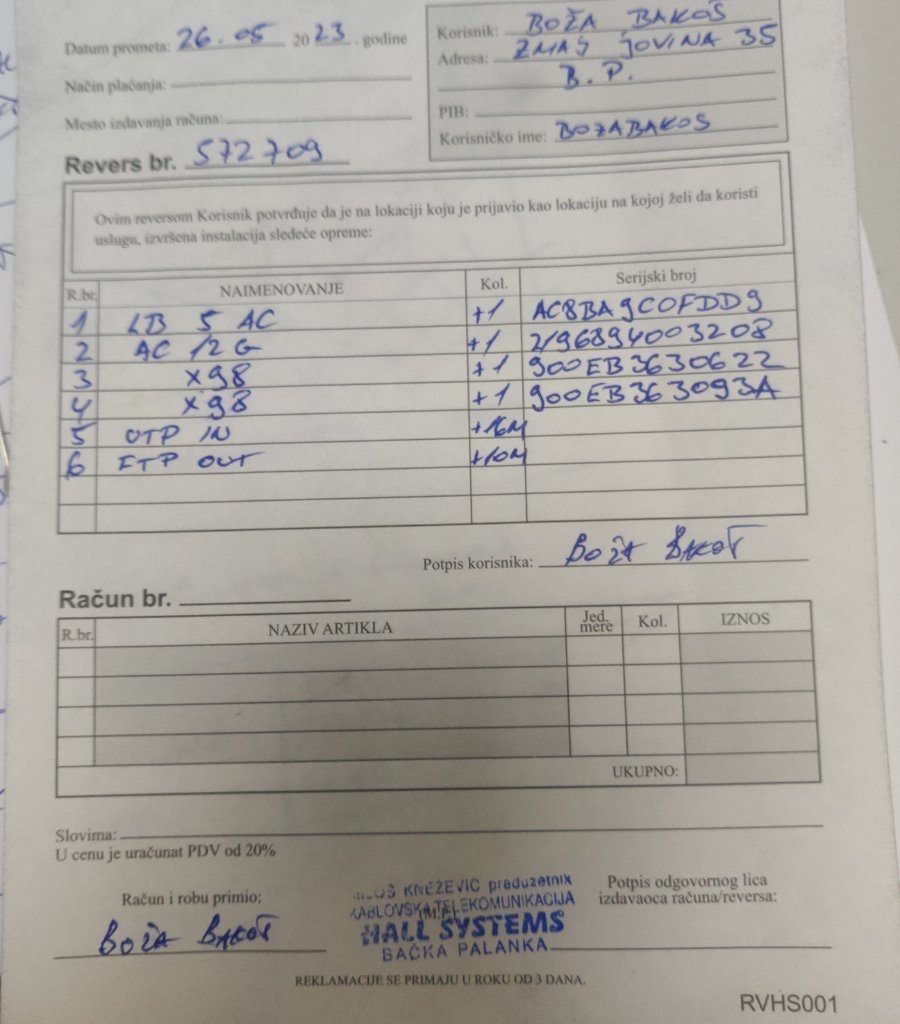 Datum prometa: 26.05 2023. godine
Način plaćanja:
Mesto izdavanja računa:
Revers br. 572709
Korisnik: BOŽA BAKOŠ
Adresa: ZMAJ JOVINA 35
B.P.
PIB:
Korisničko ime: BOZABAKOS
Ovim reversom Korisnik potvrđuje da je na lokaciji koju je prijavio kao lokaciju na kojoj želi da koristi
uslugu, izvršena instalacija sledeće opreme:
R.br. NAIMENOVANJE Kol. Serijski broj
1 LB 5 AC +1 AC8BA9C0FDD9
2 AC 12 G +1 2196894003208
3 X98 +1 900EB3630622
4 X98 +1 900EB363093A
5 UTP IN +16M
6 FTP OUT +10M
Potpis korisnika: Boža Bakoš
Račun br.
R.br. NAZIV ARTIKLA Jed. mere Kol. IZNOS
UKUPNO:
Slovima:
U cenu je uračunat PDV od 20%
Račun i robu primio:
Boža Bakoš
KNEŽEVIĆ preduzetnik
KABLOVSKA TELEKOMUNIKACIJA
(M.P.)
HALL SYSTEMS
BAČKA PALANKA
Potpis odgovornog lica
izdavaoca računa/reversa:
REKLAMACIJE SE PRIMAJU U ROKU OD 3 DANA.
RVHS001